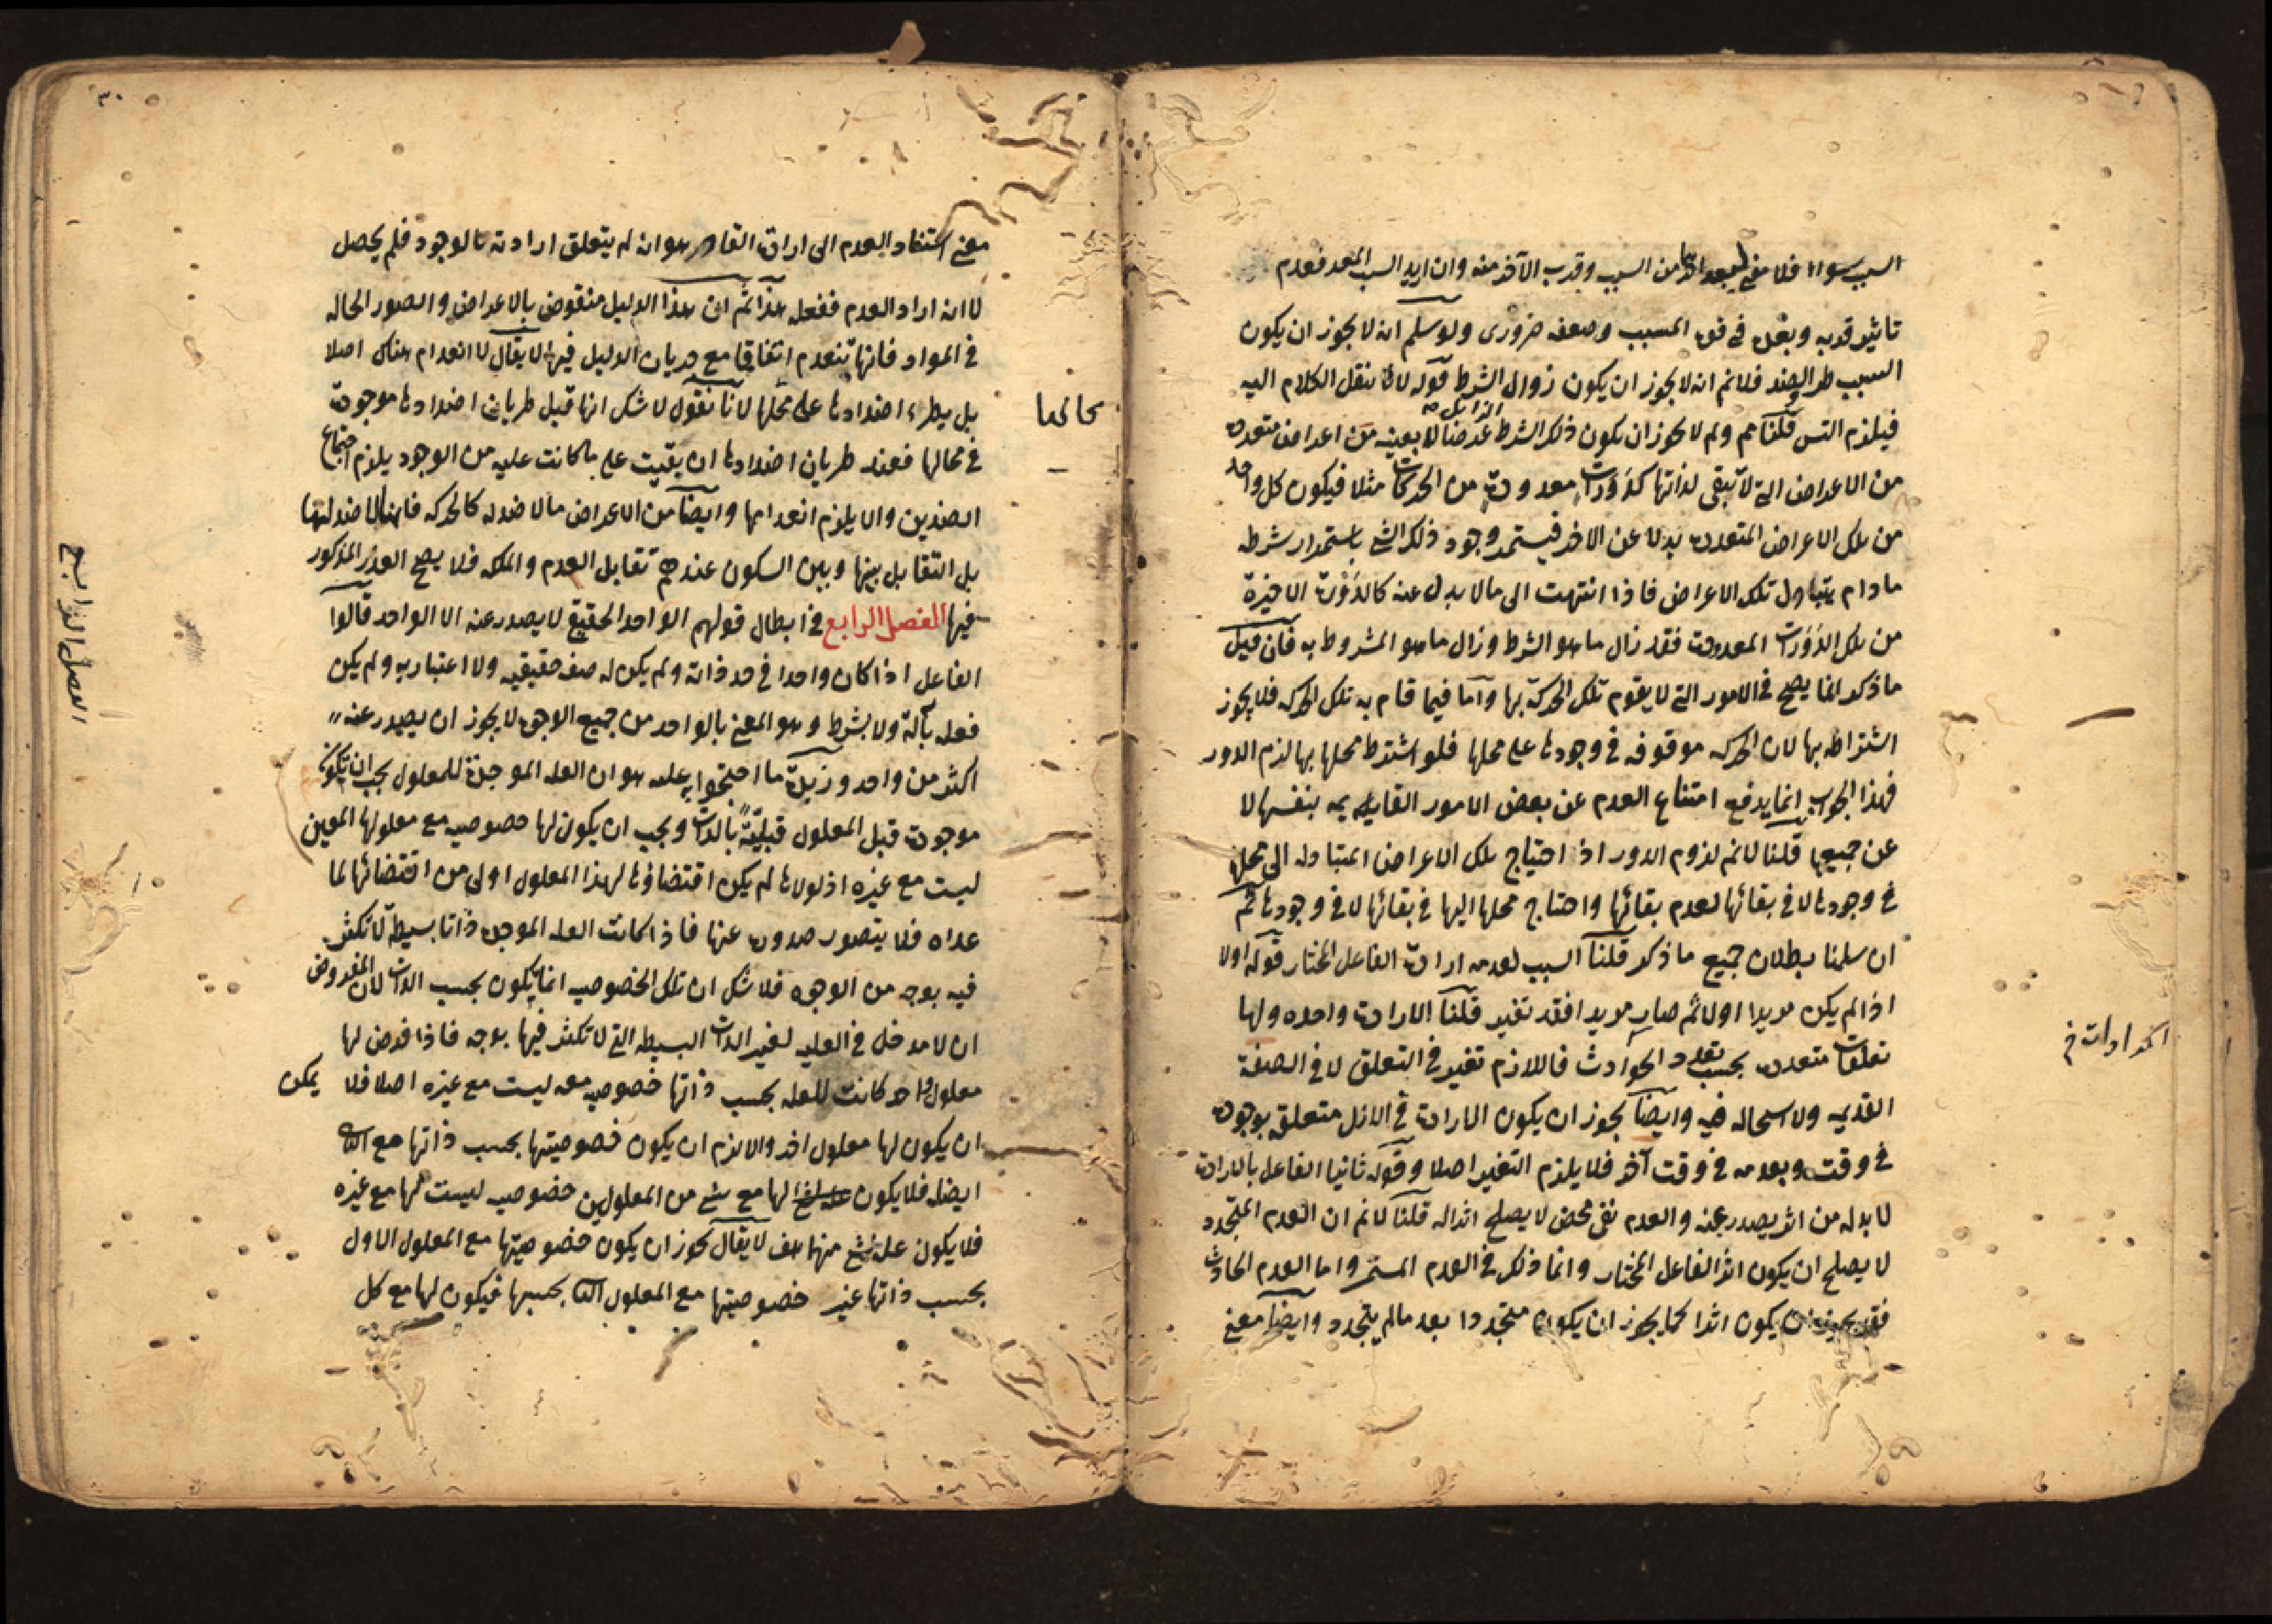 السبب سواء فلا معنى لبعد احدهما من السبب وقرب الآخر منه وان اريد السبب المعد فعدم
تاثير قربه وبعده في قوة المسبب وضعفه ضرورى ولو سلم انه لا يجوز ان يكون
السبب طريان الضد فلانم انه لا يجوز ان يكون زوال الشرط قوله لانا ننقل الكلام اليه
فيلزم التس قلنا مم ولم لا يجوز ان يكون ذلك الشرط عرضا لا بعينه من اعراض متعددة
الزايل
من الاعراض التى لا تبقى لذاتها كدورات معدودة من الحركات مثلا فيكون كل واحد
من تلك الاعراض المتعددة بدلا عن الاخر فيستمر وجود ذلك الشئ باستمرار شرطه
ما دام يتبادل تلك الاعراض فاذا انتهت الى ما لا بدل عنه كالدورة الاخيرة
من تلك الدورات المعدودة فقد زال ما هو الشرط وزال ما هو المشروط به فان قيل
ما ذكر انما يصح في الامور التى لا يقوم تلك الحركة بها واما فيما قام به تلك الحركه فلا يجوز
اشتراطه بها لان الحركه موقوفه في وجودها على محلها فلو اشترط محلها بها لزم الدور
فهذا الجواب انما يدفع امتناع العدم عن بعض الامور القايمه بنفسها لا
عن جميعها قلنا لانم لزوم الدور اذ احتياج تلك الاعراض المتبادله الى محلها
في وجودها لا في بقائها لعدم بقائها واحتياج محلها اليها في بقائها لا في وجودها ثم
ان سلمنا بطلان جميع ما ذكر قلنا السبب لعدمه ارادة الفاعل المختار قوله اولا
اذا لم يكن مريدا اولا ثم صار مريدا فقد تغير قلنا الارادة واحده ولها
تعلقات متعددة بحسب تعدد الحوادث فاللازم تغير في التعلق لا في الصفة
القديمه ولا استحاله فيه وايضا يجوز ان يكون الارادة في الازل متعلق بوجوده
في وقت وبعدمه في وقت آخر فلا يلزم التغير اصلا وقوله ثانيا الفاعل بالارادة
لا بد له من اثر يصدر عنه والعدم نفى محض لا يصلح اثرا له قلنا لانم ان العدم المتجدد
لا يصلح ان يكون اثر الفاعل المختار وانما ذلك في العدم المستمر واما العدم الحادث
يكون اثرا كما يجوز ان يكون متجددا بعد ما لم يتجدد وايضا معنى
٣٠
معنى استناد العدم الى ارادة القادر هو انه لم يتعلق ارادته بالوجود فلم يحصل
لا انه اراد العدم ففعله هذا ثم ان هذا الدليل منقوض بالاعراض والصور الحاله
في المواد فانها تنعدم اتفاقا مع جريان الدليل فيها لا يقال لا انعدام هناك اصلا
بل يطرء اضدادها على محلها لانا نقول لا شك انها قبل طريان اضدادها موجودة
في محالها فعند طريان اضدادها ان بقيت على ما كانت عليه من الوجود يلزم اجتماع
محالها
الضدين والا يلزم انعدامها وايضا من الاعراض ما لا ضد له كالحركه فانها لا ضد لها
بل التقابل بينها وبين السكون عندهم تقابل العدم والملكه فلا يصح العذر المذكور
فيها الفصل الرابع في ابطال قولهم الواحد الحقيقى لا يصدر عنه الا الواحد قالوا
الفصل الرابع
الفاعل اذا كان واحدا في حد ذاته ولم يكن له صفه حقيقيه ولا اعتباريه ولم يكن
فعله بآلة ولا بشرط وهو المعنى بالواحد من جميع الوجوه لا يجوز ان يصدر عنه
اكثر من واحد وزبدة ما احتجوا به عليه هو ان العله الموجدة للمعلول يجب ان يكون
موجودة قبل المعلول قبلية بالذات ويجب ان يكون لها خصوصيه مع معلولها المعين
ليست مع غيره اذ لولاها لم يكن اقتضاؤها لهذا المعلول اولى من اقتضائها لما
عداه فلا يتصور صدوره عنها فاذا كانت العله الموجدة ذاتا بسيطة لا تكثر
فيه بوجه من الوجوه فلا شك ان تلك الخصوصيه انما يكون بحسب الذات لان المفروض
ان لا مدخل في العليه لغير الذات البسيطه التى لا تكثر فيها بوجه فاذا فرض لها
معلول واحد كانت للعله بحسب ذاتها خصوصيه معه ليست مع غيره اصلا فلا يمكن
ان يكون لها معلول اخر والا لزم ان يكون خصوصيتها بحسب ذاتها مع الثانى
ايضا فلا يكون لها مع شئ من المعلولين خصوصيه ليست لها مع غيره
فلا يكون علة لشئ منهما هف لا يقال يجوز ان يكون خصوصيتها مع المعلول الاول
بحسب ذاتها غير خصوصيتها مع المعلول الثانى بحسبها فيكون لها مع كل